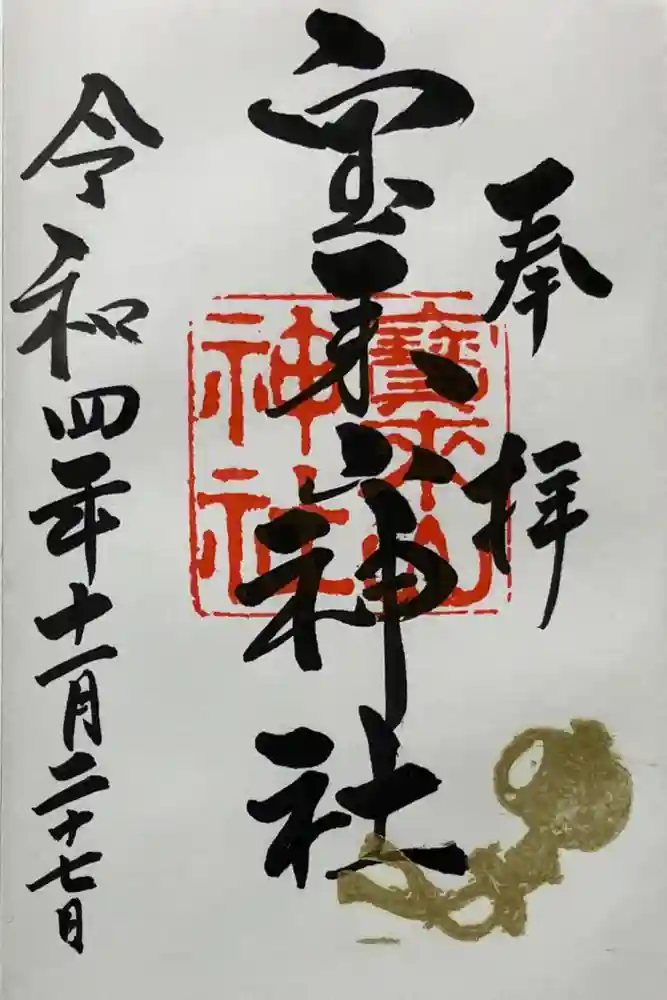 奉拝
宝来山神社
寳来山神社
令和四年十一月二十七日